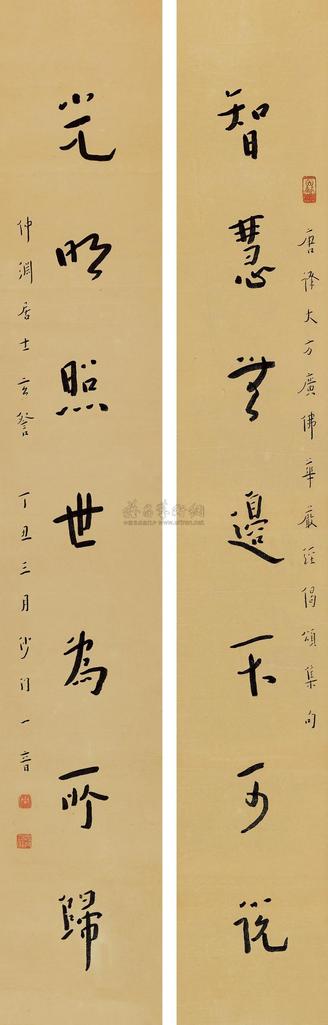 唐譯大方廣佛華嚴經偈頌集句
智慧無邊不可說
光明照世為所歸
仲淵居士玄詧
丁丑三月沙門一音